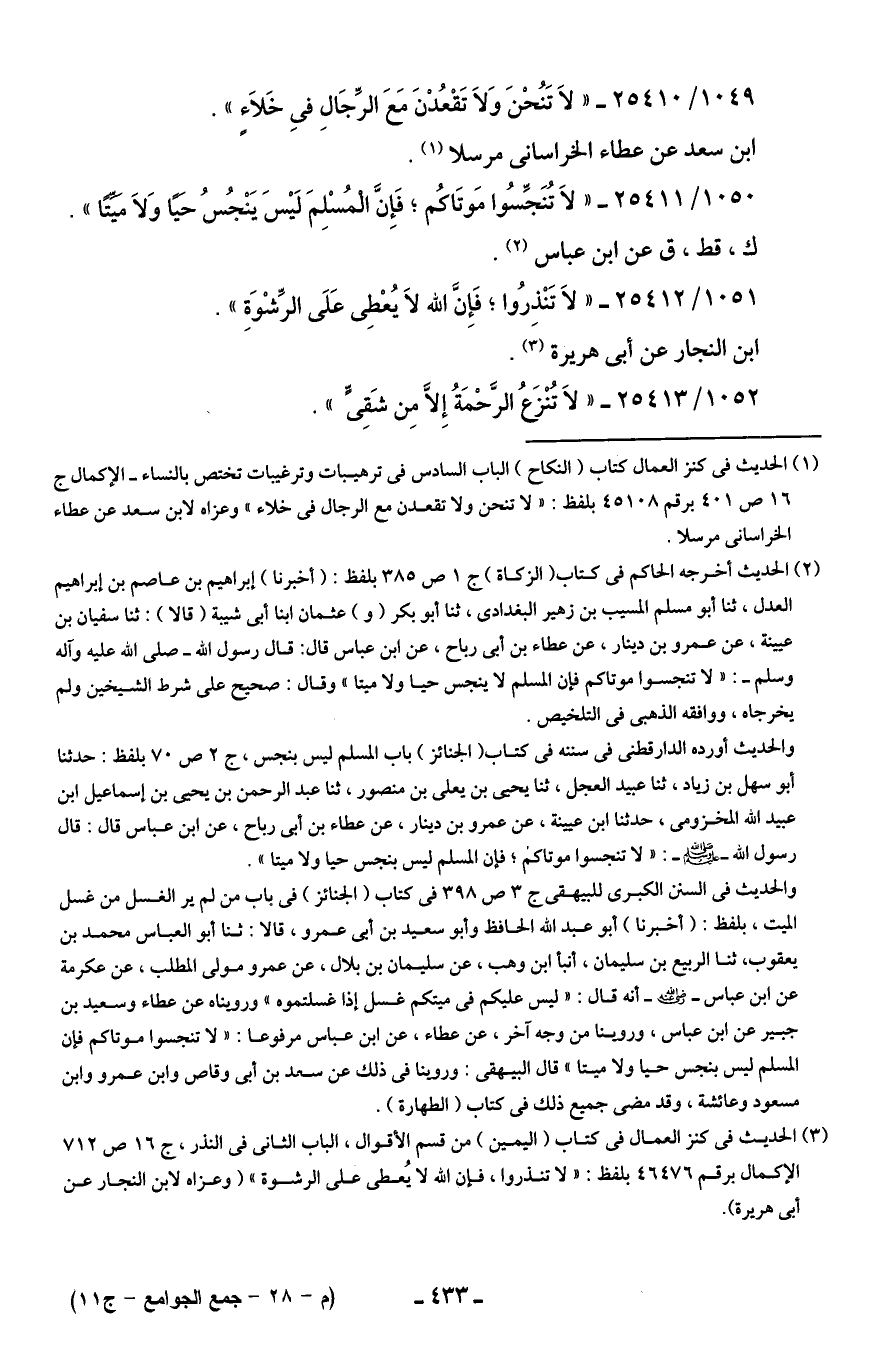 ٢٥٤١٠/١٠٤٩ ـ « لاَ تَنُحْنَ وَلاَ تَقْعُدْنَ مَعَ الرِّجَالِ فِى خَلَاءٍ » .
ابن سعد عن عطاء الخراسانى مرسلا (١) .
٢٥٤١١/١٠٥٠ ـ « لاَ تُنَجِّسُوا مَوتَاكُم ؛ فَإِنَّ الْمُسْلِمَ لَيْسَ يَنْجُسُ حَيّا وَلاَ مَيِّتًا » .
ك ، قط ، ق عن ابن عباس (٢) .
٢٥٤١٢/١٠٥١ ـ « لاَ تَنْذِرُوا ؛ فَإِنَّ الله لاَ يُعْطِى عَلَى الرِّشْوَةِ » .
ابن النجار عن أبى هريرة (٣) .
٢٥٤١٣/١٠٥٢ ـ « لاَ تُنْزَعُ الرَّحْمَةُ إِلاَّ مِن شَقِىٍّ » .
(١) الحديث فى كنز العمال كتاب ( النكاح ) الباب السادس فى ترهيبات وترغيبات تختص بالنساء ـ الإكمال ج
١٦ ص ٤٠١ برقم ٤٥١٠٨ بلفظ : « لا تنحن ولا تقعدن مع الرجال فى خلاء » وعزاه لابن سعد عن عطاء
الخراسانى مرسلا .
(٢) الحديث أخرجه الحاكم فى كتاب( الزكاة ) ج ١ ص ٣٨٥ بلفظ : ( أخبرنا ) إبراهيم بن عاصم بن إبراهيم
العدل ، ثنا أبو مسلم المسيب بن زهير البغدادى ، ثنا أبو بكر ( و ) عثمان ابنا أبى شيبة ( قالا ) : ثنا سفيان بن
عيينة ، عن عمرو بن دينار ، عن عطاء بن أبى رباح ، عن ابن عباس قال: قال رسول الله ـ صلى الله عليه وآله
وسلم ـ : « لا تنجسوا موتاكم فإن المسلم لا ينجس حيا ولا ميتا » وقال : صحيح على شرط الشيخين ولم
يخرجاه ، ووافقه الذهبى فى التلخيص .
والحديث أورده الدارقطنى فى سننه فى كتاب( الجنائز ) باب المسلم ليس بنجس ، ج ٢ ص ٧٠ بلفظ : حدثنا
أبو سهل بن زياد ، ثنا عبيد العجل ، ثنا يحيى بن يعلى بن منصور ، ثنا عبد الرحمن بن يحيى بن إسماعيل ابن
عبيد الله المخزومى ، حدثنا ابن عيينة ، عن عمرو بن دينار ، عن عطاء بن أبى رباح ، عن ابن عباس قال : قال
رسول الله ـ ﷺ ـ : « لا تنجسوا موتاكم ؛ فإن المسلم ليس بنجس حيا ولا ميتا » .
والحديث فى السنن الكبرى للبيهقى ج ٣ ص ٣٩٨ فى كتاب ( الجنائز ) فى باب من لم ير الغسل من غسل
الميت ، بلفظ : ( أخبرنا ) أبو عبد الله الحافظ وأبو سعيد بن أبى عمرو ، قالا : ثنا أبو العباس محمد بن
يعقوب، ثنا الربيع بن سليمان ، أنبأ ابن وهب ، عن سليمان بن بلال ، عن عمرو مولى المطلب ، عن عكرمة
عن ابن عباس ـ رضي الله عنه ـ أنه قال : « ليس عليكم فى ميتكم غسل إذا غسلتموه » ورويناه عن عطاء وسعيد بن
جبير عن ابن عباس ، وروينا من وجه آخر ، عن عطاء ، عن ابن عباس مرفوعا : « لا تنجسوا موتاكم فإن
المسلم ليس بنجس حيا ولا ميتا » قال البيهقى : وروينا فى ذلك عن سعد بن أبى وقاص وابن عمرو وابن
مسعود وعائشة ، وقد مضى جميع ذلك فى كتاب ( الطهارة ) .
(٣) الحديث فى كنز العمال فى كتاب ( اليمين ) من قسم الأقوال ، الباب الثانى فى النذر ، ج ١٦ ص ٧١٢
الإكمال برقم ٤٦٤٧٦ بلفظ : « لا تنذروا ، فإن الله لا يُعطى على الرشوة » ( وعزاه لابن النجار عن
أبى هريرة).
ـ ٤٣٣ ـ
(م - ٢٨ - جمع الجوامع - ج١١)